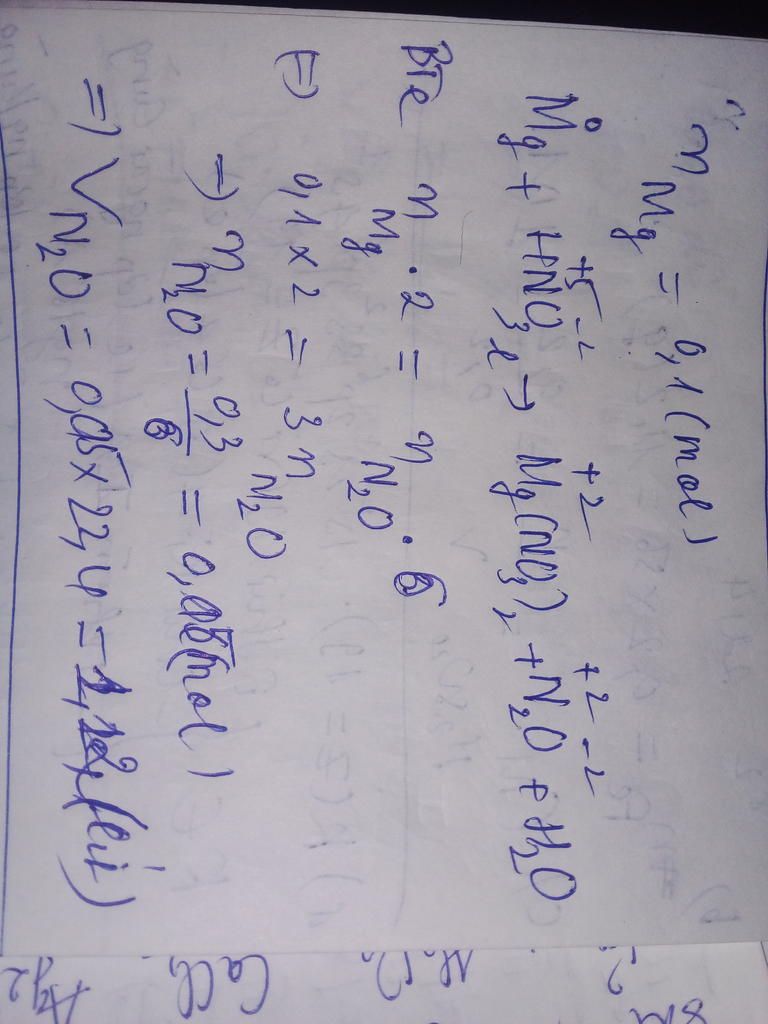 n Mg = 0,1 (mol)
Mg⁰ + HN⁺⁵O₃⁻² → Mg⁺²(NO₃)₂ + N₂⁺²O⁻² + H₂O
BTe n Mg . 2 = n N₂O . 6
⇔ 0,1 × 2 = 3 n N₂O
→ n N₂O = 0,3/6 = 0,05 (mol)
⇒ V N₂O = 0,05 × 22,4 = 1,12 (lít)
CaCl
Ag₂